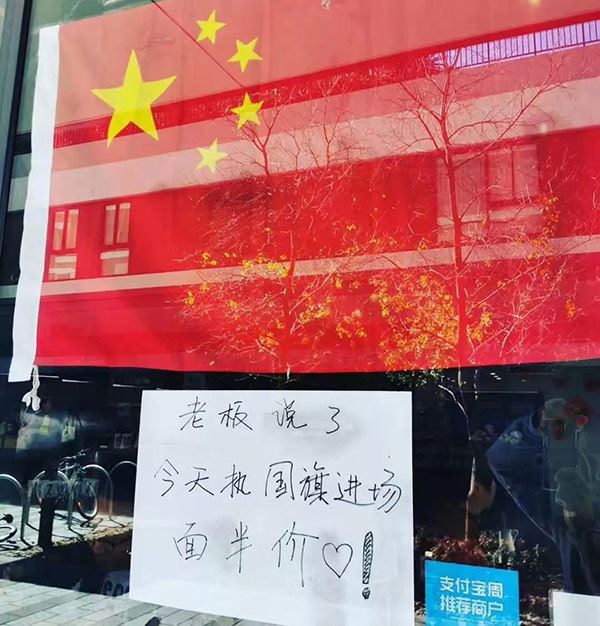 老板说了
今天执国旗进场
面半价♡！
支付宝周
推荐商户